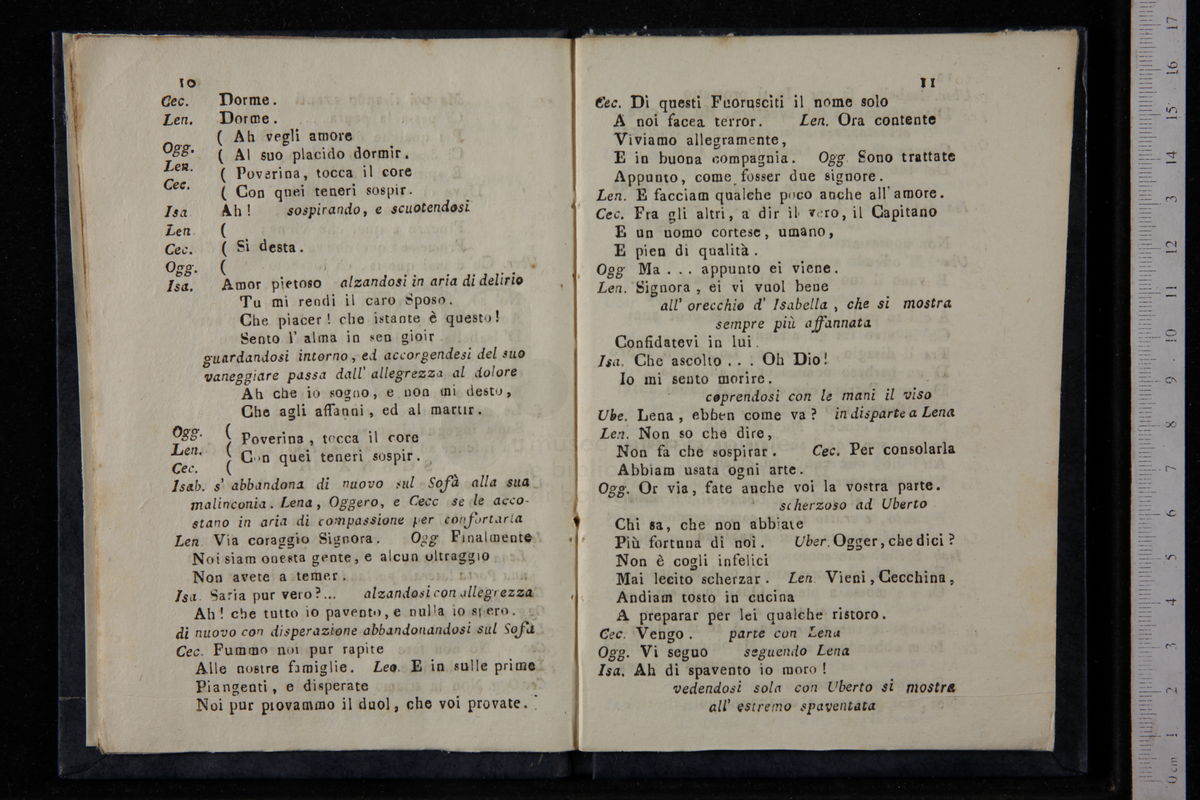 10
Cec. Dorme.
Len. Dorme.
( Ah vegli amore
Ogg. ( Al suo placido dormir.
Len. ( Poverina, tocca il core
Cec. ( Con quei teneri sospir.
Isa Ah! sospirando, e scuotendosi
Len. (
Cec. ( Si desta.
Ogg. (
Isa. Amor pietoso alzandosi in aria di delirio
Tu mi rendi il caro Sposo.
Che piacer! che istante è questo!
Sento l' alma in sen gioir
guardandosi intorno, ed accorgendesi del suo
vaneggiare passa dall' allegrezza al dolore
Ah che io sogno, e non mi desto,
Che agli affanni, ed al martir.
Ogg. (
Poverina, tocca il core
Len. (
Con quei teneri sospir.
Cec. (
Isab. s' abbandona di nuovo sul Sofà alla sua
malinconia. Lena, Oggero, e Cecc se le acco-
stano in aria di compassione per confortarla
Len Via coraggio Signora. Ogg Finalmente
Noi siam onesta gente, e alcun oltraggio
Non avete a temer.
Isa. Saria pur vero?... alzandosi con allegrezza
Ah! che tutto io pavento, e nulla io spero.
di nuovo con disperazione abbandonandosi sul Sofà
Cec. Fummo noi pur rapite
Alle nostre famiglie. Leo. E in sulle prime
Piangenti, e disperate
Noi pur piovammo il duol, che voi provate.
11
Cec. Di questi Fuorusciti il nome solo
A noi facea terror. Len. Ora contente
Viviamo allegramente,
E in buona compagnia. Ogg Sono trattate
Appunto, come fosser due signore.
Len. E facciam qualche poco anche all' amore.
Cec. Fra gli altri, a dir il vero, il Capitano
E un uomo cortese, umano,
E pien di qualità.
Ogg Ma . . . appunto ei viene.
Len. Signora, ei vi vuol bene
all' orecchio d' Isabella, che si mostra
sempre più affannata
Confidatevi in lui.
Isa. Che ascolto . . . Oh Dio!
Io mi sento morire.
coprendosi con le mani il viso
Ube. Lena, ebben come va? in disparte a Lena
Len. Non so che dire,
Non fa che sospirar. Cec. Per consolarla
Abbiam usata ogni arte.
Ogg. Or via, fate anche voi la vostra parte.
scherzoso ad Uberto
Chi sa, che non abbiate
Più fortuna di noi. Uber. Ogger, che dici?
Non è cogli infelici
Mai lecito scherzar. Len. Vieni, Cecchina,
Andiam tosto in cucina
A preparar per lei qualche ristoro.
Cec. Vengo. parte con Lena
Ogg. Vi seguo seguendo Lena
Isa. Ah di spavento io moro!
vedendosi sola con Uberto si mostra
all' estremo spaventata
0 cm 1 2 3 4 5 6 7 8 9 10 11 12 13 14 15 16 17